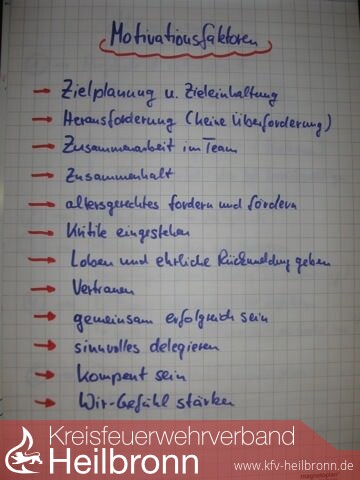 Motivationsfaktoren
→ Zielplanung u. Zieleinhaltung
→ Herausforderung (keine Überforderung)
→ Zusammenarbeit im Team
→ Zusammenhalt
→ altersgerechtes fordern und fördern
→ Kritik eingestehen
→ Loben und ehrliche Rückmeldung geben
→ Vertrauen
→ gemeinsam erfolgreich sein
→ sinnvolles delegieren
→ Kompent sein
→ Wir-Gefühl stärken
Kreisfeuerwehrverband
Heilbronn
www.kfv-heilbronn.de